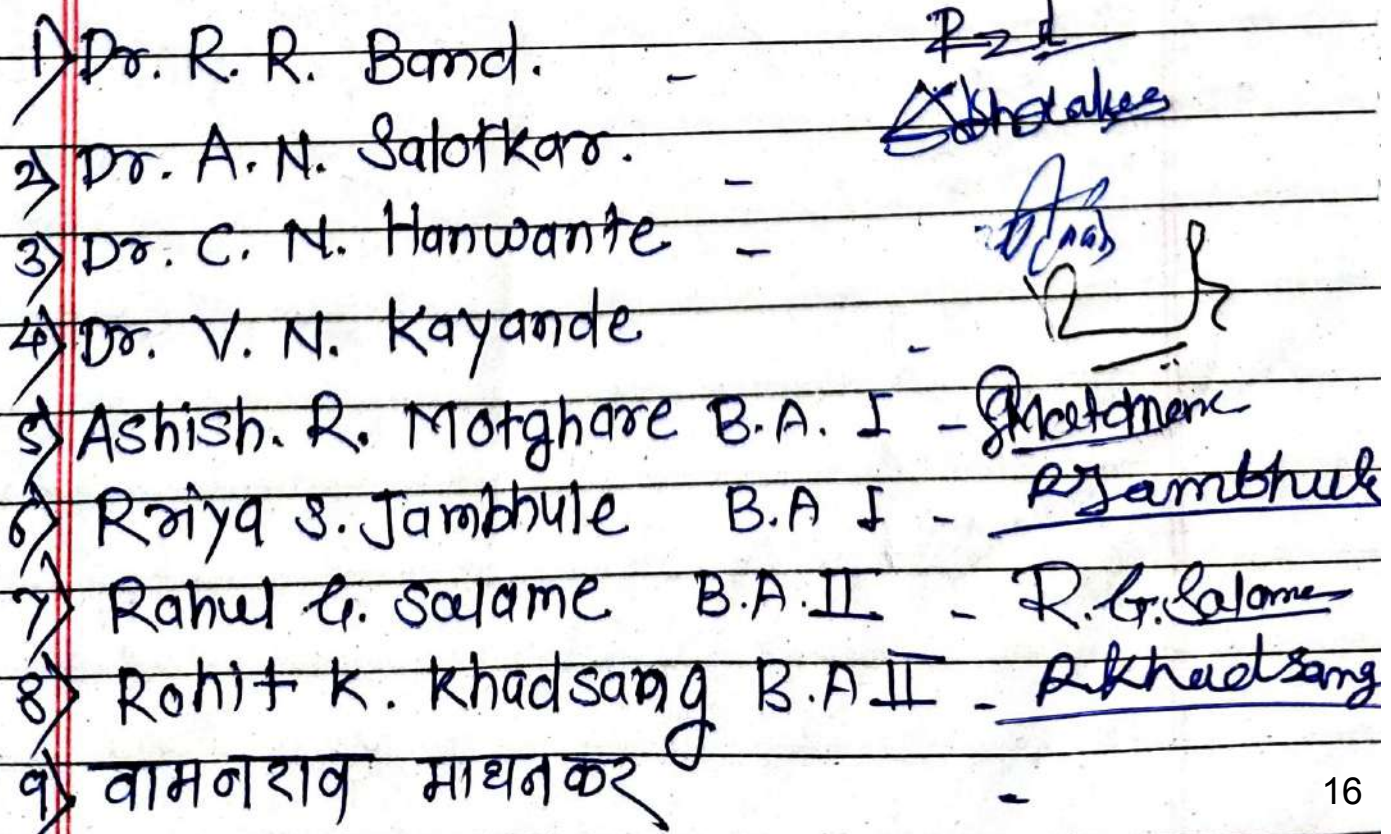 1) Dr. R. R. Band. -
2) Dr. A. N. Salotkar. -
3) Dr. C. N. Hanwante -
4) Dr. V. N. Kayande -
5) Ashish. R. Motghare B.A. I -
6) Rriya S. Jambhule B.A I - PJambhule
7) Rahul G. Salame B.A. II - R. G. Salame
8) Rohit K. Khadsang B.A II - RKhadsang
९) वामनराव माथनकर -
16